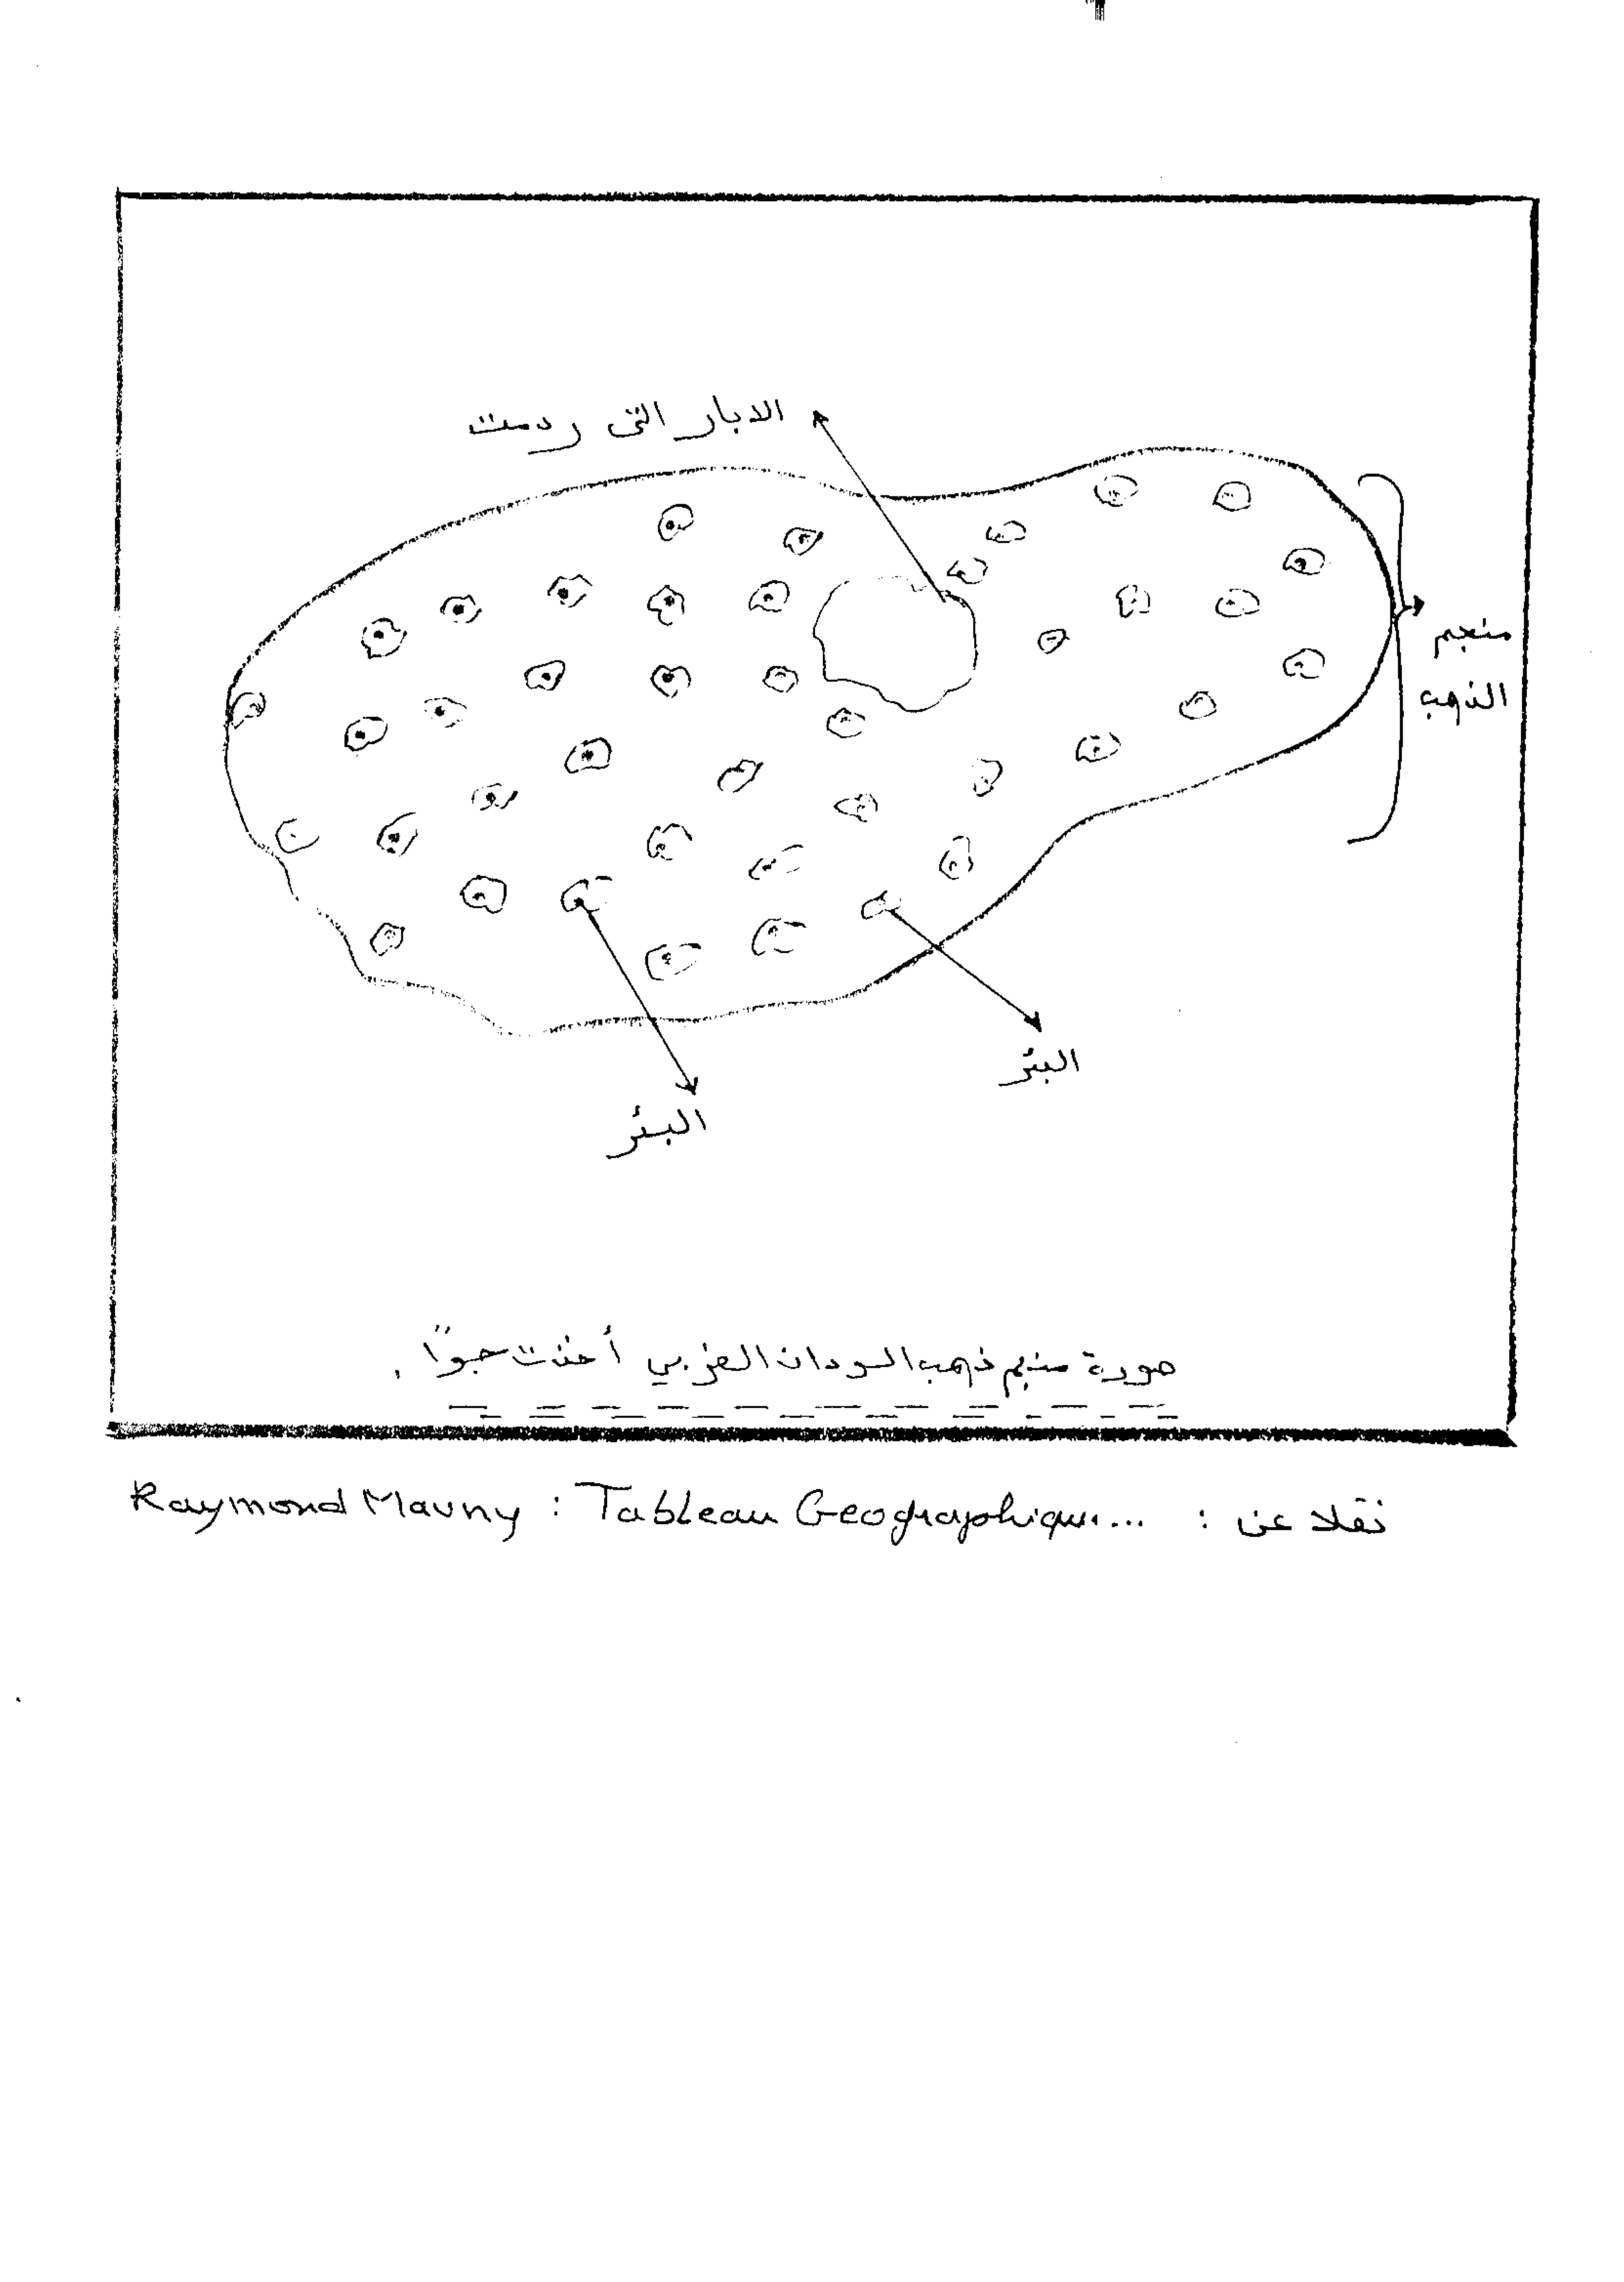 الابار التى ردمت
منجم
الذهب
البئر
البئر
صورة منجم ذهب السودان الغربي أخذت جوًا .
نقلا عن : Raymond Mauny : Tableau Geographique...